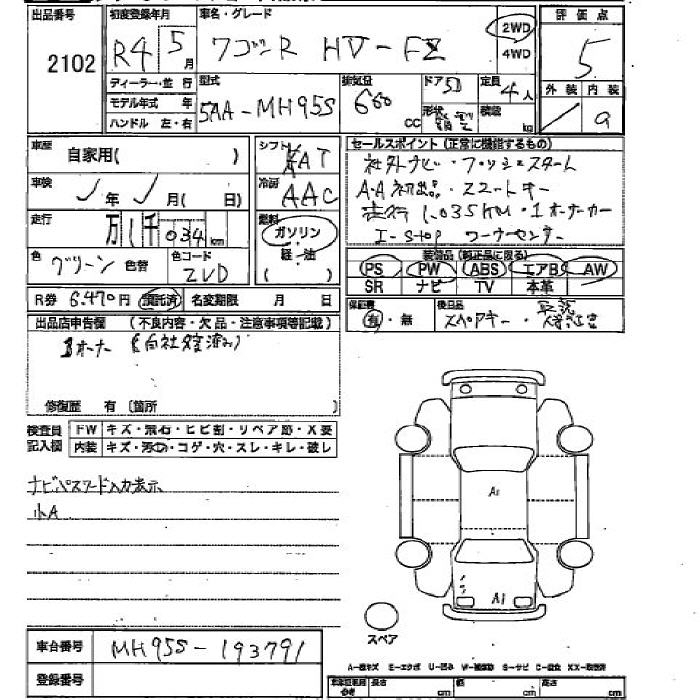 出品番号 2102
初度登録年月 R4年 5月
車名・グレード ワゴンR HV-FZ
2WD
4WD
評価点 5
外装 内装 a
ディーラー・並行
モデル年式 年
ハンドル 左・右
型式 5AA-MH95S
排気量 660 CC
ドア 5D
形状
定員 4人
積載 kg
車歴 自家用( )
シフト AT
車検 年 月( 日)
冷房 AAC
走行 万 1千 034 km
燃料 ガソリン
軽・油
( )
色 グリーン 色替
色コード ZVD
R券 6,470円 預託済 名変期限 月 日
セールスポイント(正常に機能するもの)
社外ナビ・プッシュスタート
A・A初出品・スマートキー
走行1,035KM・1オーナーカー
I-stop コーナーセンサー
装備品(純正品に限る)
PS PW ABS エアB AW
SR ナビ TV 本革
保証書 有・無
後日品 スペアキー・
出品店申告欄 (不良内容・欠品・注意事項等記載)
修復歴 有(箇所 )
検査員記入欄
FW キズ・飛石・ヒビ割・リペア跡・X要
内装 キズ・汚・コゲ・穴・スレ・キレ・破レ
ナビパスワード入力表示
小A
A1
A1
スペア
車台番号 MH95S-193791
登録番号
長さ cm 幅 cm 高さ cm